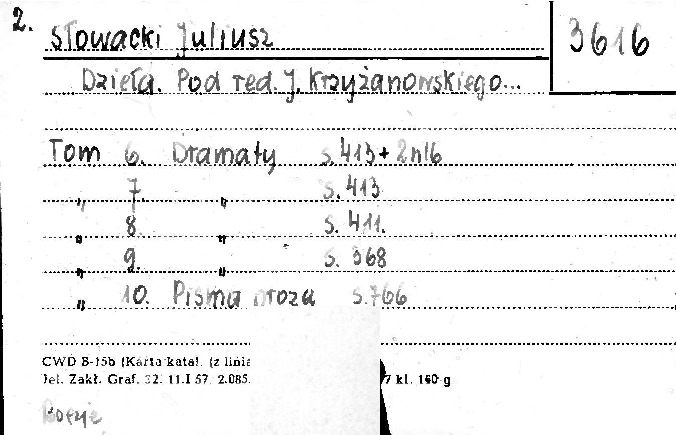 2.
Słowacki Juliusz
3616
Dzieła. Pod red. J. Krzyżanowskiego...
Tom 6. Dramaty s. 413 + 2nlb
" 7. " s. 413
" 8. " s. 411.
" 9. " s. 368
" 10. Pisma prozą s. 766
CWD B-15b (Karta katal. (z linia
Jel. Zakł. Graf. 32. 11.I 57. 2.085. 7 kl. 140 g
Poezje